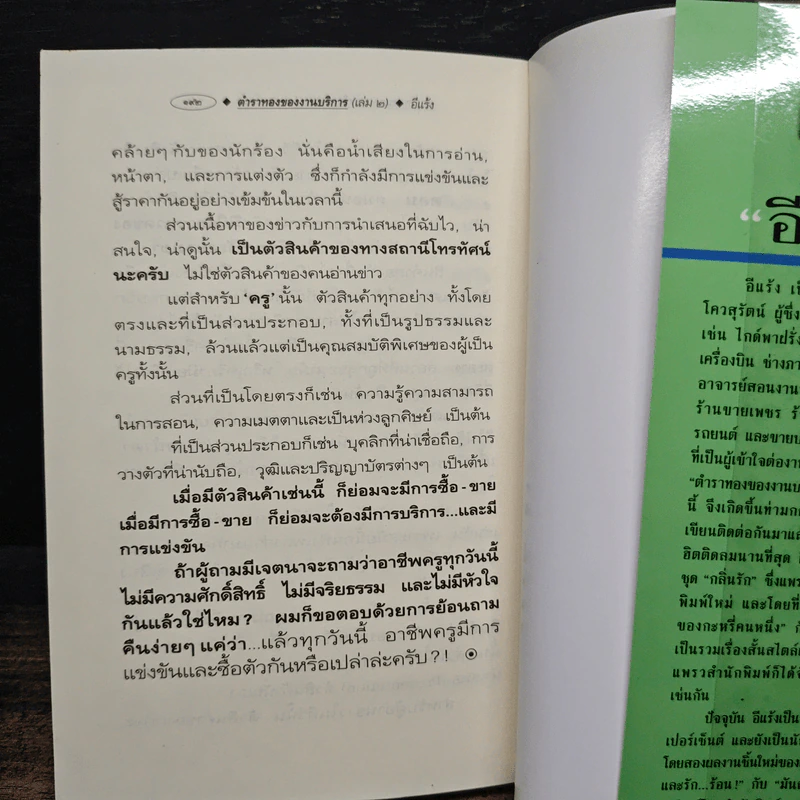 ๑๙๒ ◆ ตำราทองของงานบริการ (เล่ม ๒) ◆ อีแร้ง
คล้ายๆ กับของนักร้อง นั่นคือน้ำเสียงในการอ่าน,
หน้าตา, และการแต่งตัว ซึ่งก็กำลังมีการแข่งขันและ
สู้ราคากันอยู่อย่างเข้มข้นในเวลานี้
ส่วนเนื้อหาของข่าวกับการนำเสนอที่ฉับไว, น่า
สนใจ, น่าดูนั้น เป็นตัวสินค้าของทางสถานีโทรทัศน์
นะครับ ไม่ใช่ตัวสินค้าของคนอ่านข่าว
แต่สำหรับ ‘ครู’ นั้น ตัวสินค้าทุกอย่าง ทั้งโดย
ตรงและที่เป็นส่วนประกอบ, ทั้งที่เป็นรูปธรรมและ
นามธรรม, ล้วนแล้วแต่เป็นคุณสมบัติพิเศษของผู้เป็น
ครูทั้งนั้น
ส่วนที่เป็นโดยตรงก็เช่น ความรู้ความสามารถ
ในการสอน, ความเมตตาและเป็นห่วงลูกศิษย์ เป็นต้น
ที่เป็นส่วนประกอบก็เช่น บุคลิกที่น่าเชื่อถือ, การ
วางตัวที่น่านับถือ, วุฒิและปริญญาบัตรต่างๆ เป็นต้น
เมื่อมีตัวสินค้าเช่นนี้ ก็ย่อมจะมีการซื้อ-ขาย
เมื่อมีการซื้อ-ขาย ก็ย่อมจะต้องมีการบริการ...และมี
การแข่งขัน
ถ้าผู้ถามมีเจตนาจะถามว่าอาชีพครูทุกวันนี้
ไม่มีความศักดิ์สิทธิ์ ไม่มีจริยธรรม และไม่มีหัวใจ
กันแล้วใช่ไหม? ผมก็ขอตอบด้วยการย้อนถาม
คืนง่ายๆ แค่ว่า...แล้วทุกวันนี้ อาชีพครูมีการ
แข่งขันและซื้อตัวกันหรือเปล่าล่ะครับ?!
“อี
อีแร้ง เ
โควสุรัตน์ ผู้ซึ่
เช่น ไกด์พาฝรั่ง
เครื่องบิน ช่างภา
อาจารย์สอนงาน
ร้านขายเพชร ร้า
รถยนต์ และขายป
ที่เป็นผู้เข้าใจต่องา
“ตำราทองของงานบ
นี้ จึงเกิดขึ้นท่ามก
เขียนติดต่อกันมาแล
ฮิตติดลมนานที่สุด
ชุด “กลิ่นรัก” ซึ่งแพร
พิมพ์ใหม่ และโดยที่
ของกะหรี่คนหนึ่ง”
เป็นรวมเรื่องสั้นสไตล์
แพรวสำนักพิมพ์ก็ได้จ
เช่นกัน
ปัจจุบัน อีแร้งเป็น
เปอร์เซ็นต์ และยังเป็นนัก
โดยสองผลงานชิ้นใหม่ของ
และรัก...ร้อน!” กับ “มัน